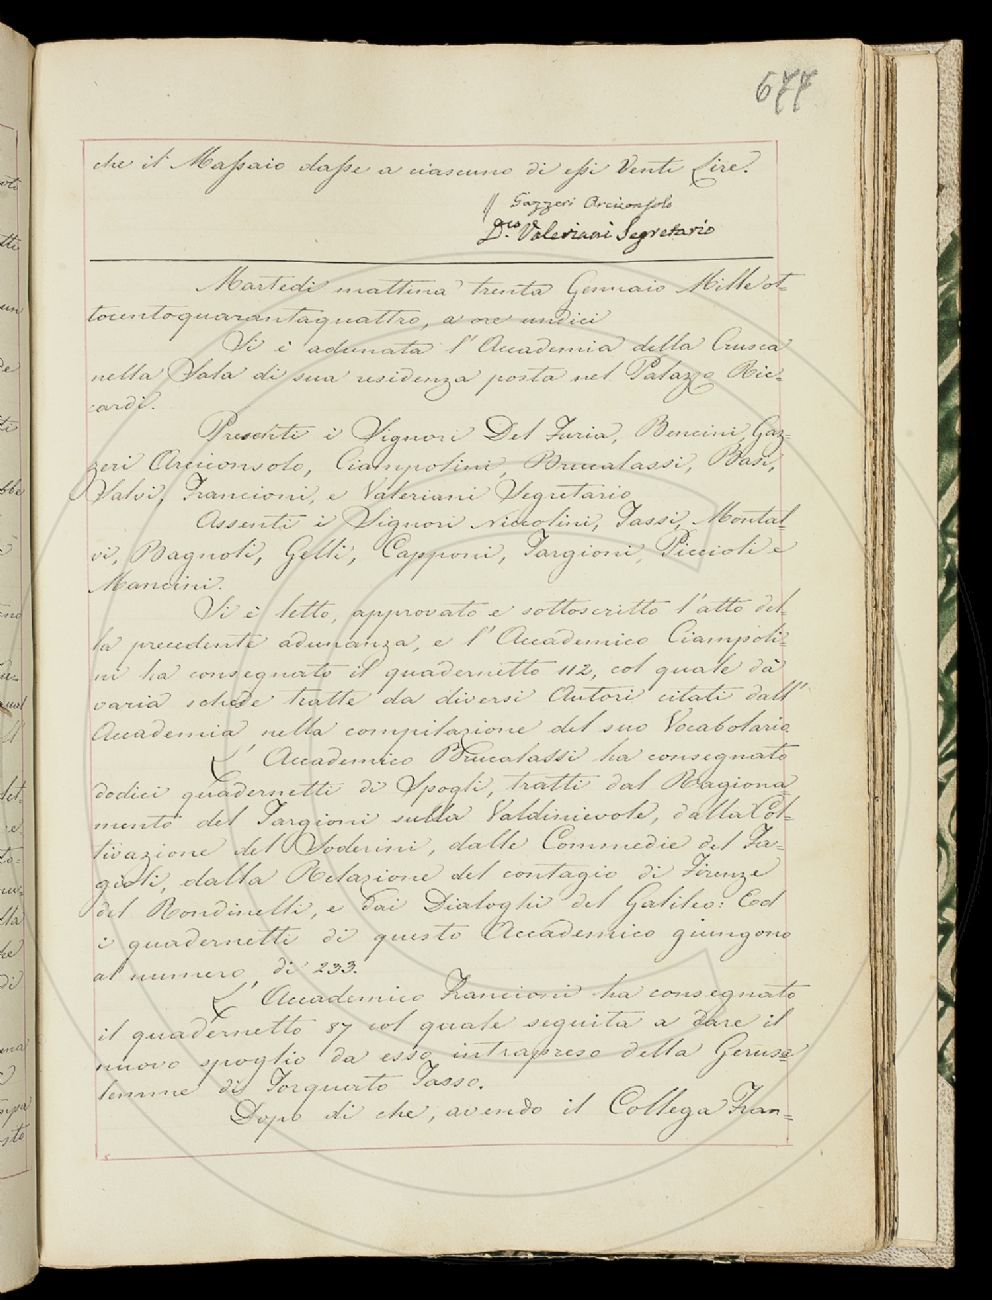 677
che il Massaio dasse a ciascuno di essi Venti Lire.
Gazzeri Arciconsolo
D.co Valeriani Segretario
Martedì mattina trenta Gennaio Milleot=
tocentoquarantaquattro, a ore undici
Si è adunata l'Accademia della Crusca
nella Sala di sua residenza posta nel Palazzo Ric=
cardi.
Presenti i Signori Del Furia, Bencini, Gaz=
zeri Arciconsolo, Ciampolini, Brucalassi, Basi,
Salvi, Francioni, e Valeriani Segretario
Assenti i Signori Niccolini, Tassi, Montal=
vi, Bagnoli, Gelli, Capponi, Targioni, Piccioli e
Mancini.
Si è letto, approvato e sottoscritto l'atto del=
la precedente adunanza, e l'Accademico Ciampoli=
ni ha consegnato il quadernetto 112, col quale dà
varie schede tratte da diversi Autori citati dall'
Accademia nella compilazione del suo Vocabolario
L'Accademico Brucalassi ha consegnato
dodici quadernetti di Spogli, tratti dal Ragiona=
mento del Targioni sulla Valdinievole, dalla Col=
tivazione del Soderini, dalle Commedie del Fa=
gioli, dalla Relazione del contagio di Firenze
del Rondinelli, e dai Dialoghi del Galileo: Ed
i quadernetti di questo Accademico giungono
al numero di 233.
L'Accademico Francioni ha consegnato
il quadernetto 87 col quale seguita a dare il
nuovo spoglio da esso intrapreso della Gerusa
lemme di Torquato Tasso.
Dopo di che, avendo il Collega Fran=